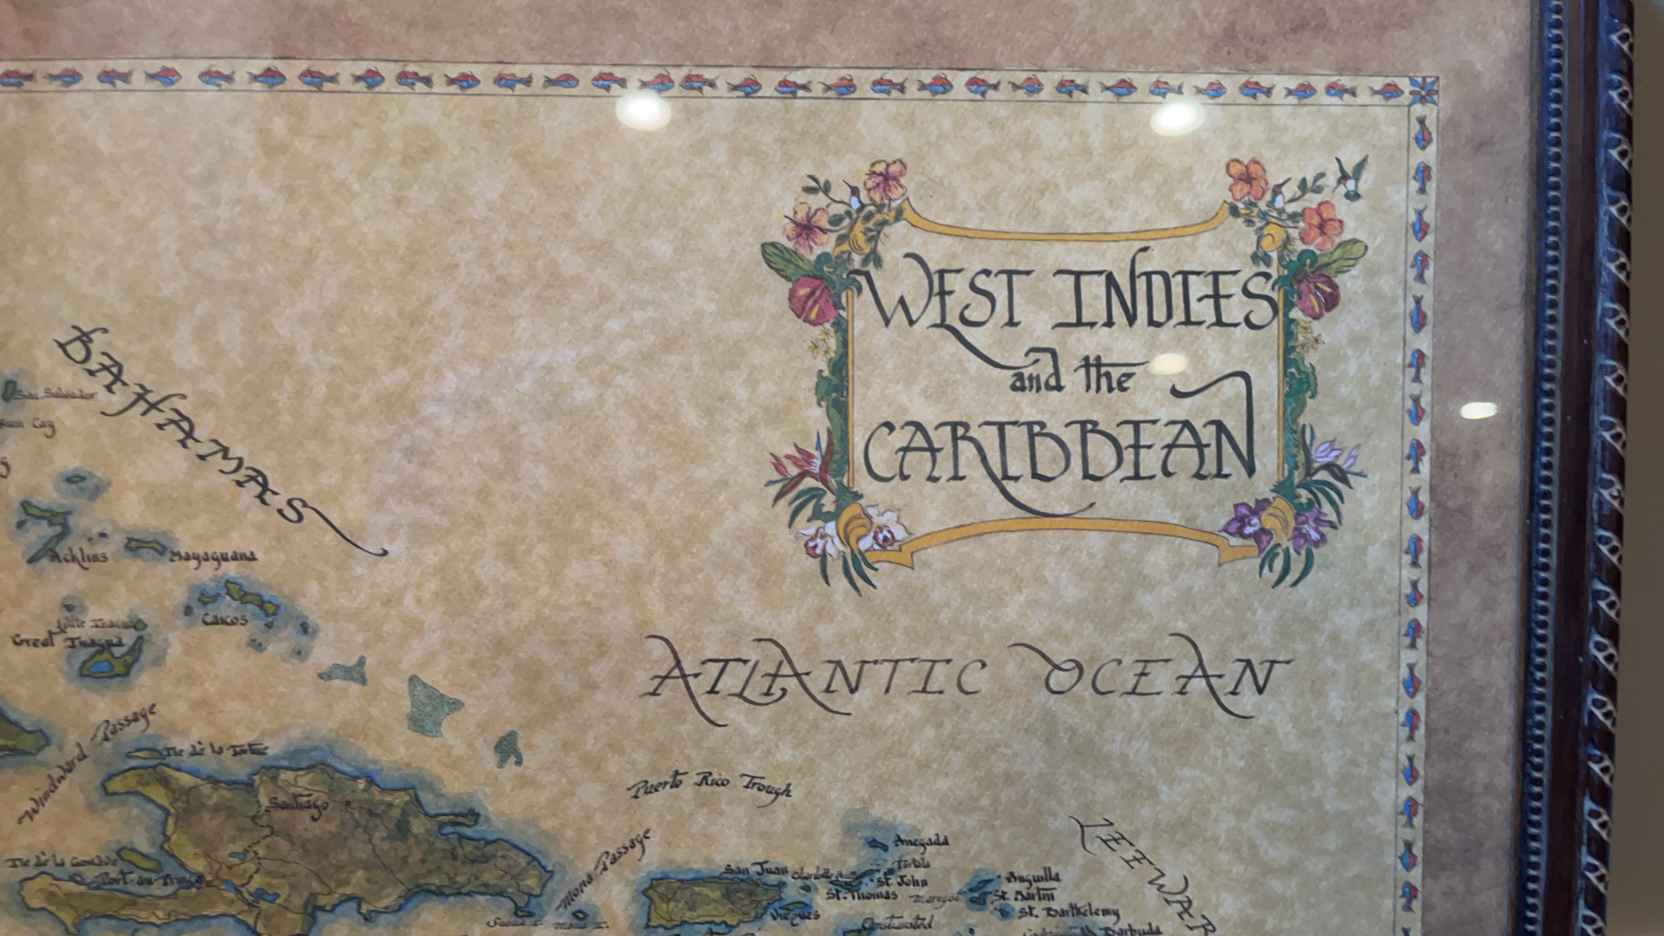 WEST INDIES
and the
CARIBBEAN
BAHAMAS
San Salvador
Cay
Acklins
Mayaguana
CAICOS
Great Inagua
ATLANTIC OCEAN
Windward Passage
Ile de la Tortue
Santiago
Puerto Rico Trough
Mona Passage
Ile de la Gonâve
Port-au-Prince
Anegada
Tortola
San Juan
St. John
St. Thomas
Vieques
Anguilla
St. Martin
St. Barthelemy
Barbuda
LEEWAR